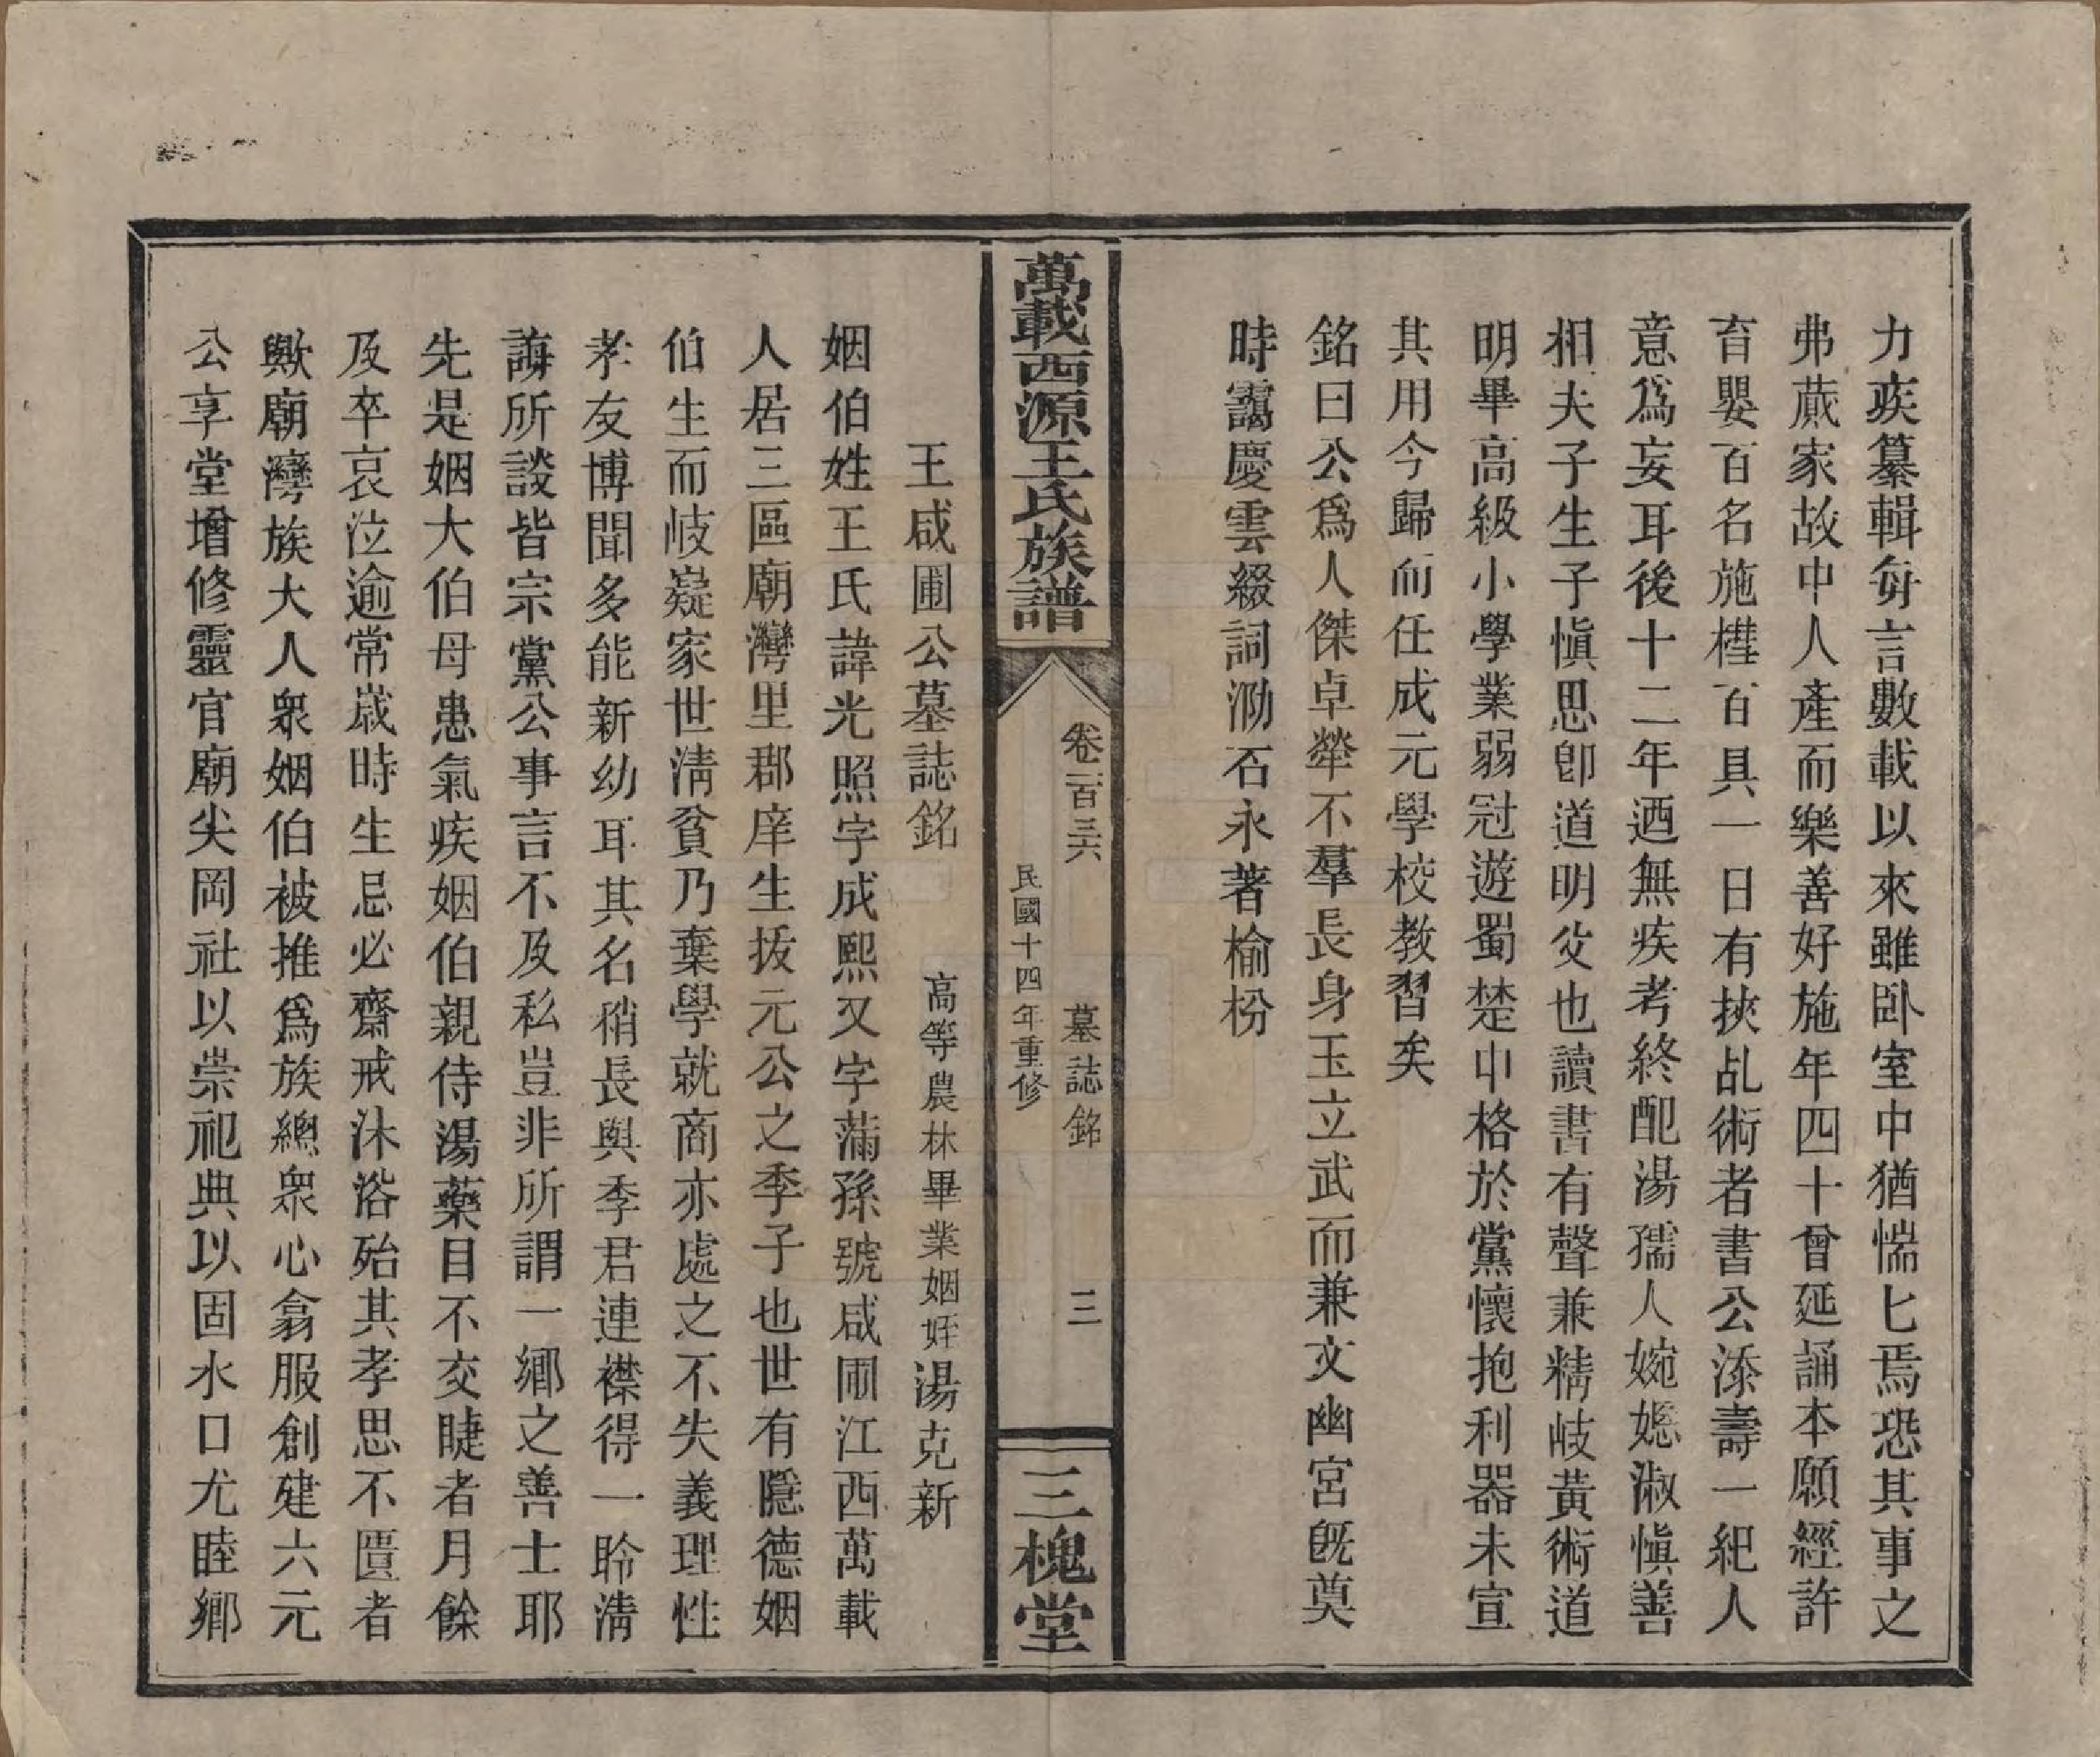 力疾纂輯每言數載以來雖卧室中猶惴匕焉恐其事之
弗蕆家故中人產而樂善好施年四十曾延誦本願經許
育嬰百名施槥百具一日有挾乩術者書公添壽一紀人
意爲妄耳後十二年迺無疾考終配湯孺人婉嫕淑愼善
相夫子生子愼思卽道明父也讀書有聲兼精岐黃術道
明畢高級小學業弱冠遊蜀楚中格於黨懷抱利器未宣
其用今歸而任成元學校教習矣
銘曰公爲人傑卓犖不羣長身玉立武而兼文幽宮旣奠
時靄慶雲綴詞泐石永著榆枌
萬載西源王氏族譜
卷二百三六 墓誌銘 三
民國十四年重修
三槐堂
王咸圃公墓誌銘 高等農林畢業姻姪湯克新
姻伯姓王氏諱光照字成熙又字蒲孫號咸圃江西萬載
人居三區廟灣里郡庠生拔元公之季子也世有隱德姻
伯生而岐嶷家世淸貧乃棄學就商亦處之不失義理性
孝友博聞多能新幼耳其名稍長與季君連襟得一聆淸
誨所談皆宗黨公事言不及私豈非所謂一鄉之善士耶
先是姻大伯母患氣疾姻伯親侍湯藥目不交睫者月餘
及卒哀泣逾常嵗時生忌必齋戒沐浴殆其孝思不匱者
歟廟灣族大人衆姻伯被推爲族總衆心翕服創建六元
公享堂增修靈官廟尖岡社以崇祀典以固水口尤睦鄉